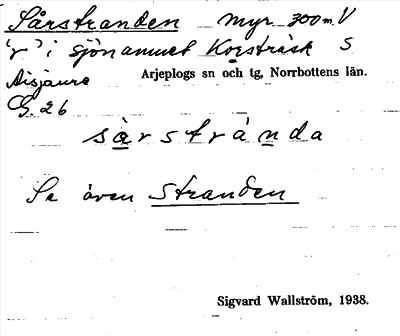 Sårstranden myr 300 m. V
"r" i sjönamnet Korsträsk S
Aisjaure Arjeplogs sn och tg, Norrbottens län.
G. 26
sàrstrànda
Se även Stranden
Sigvard Wallström, 1938.